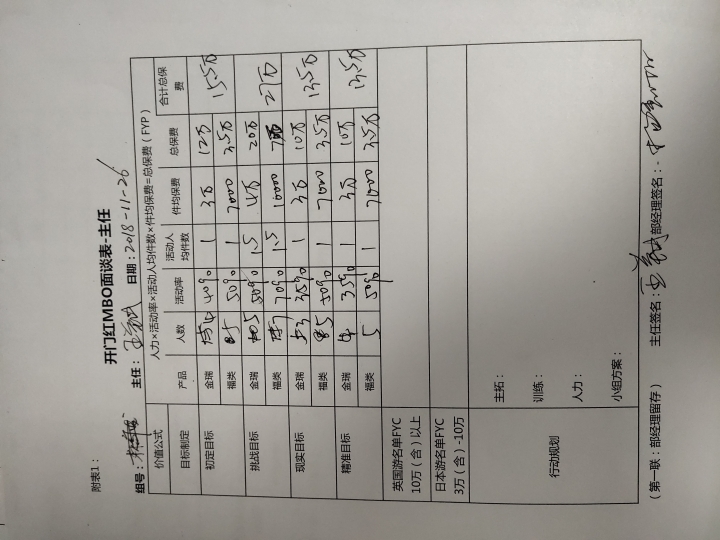 附表1：
开门红MBO面谈表-主任
组号： 主任： 日期：2018-11-26
价值公式 人力×活动率×活动人均件数×件均保费=总保费（FYP） 合计总保费
目标制定 产品 人数 活动率 活动人均件数 件均保费 总保费
初定目标 金瑞 40% 1 3万 12万 15.5万
福类 5 50% 1 7000 3.5万
挑战目标 金瑞 5 50% 1.5 4万 20万 27万
福类 7 70% 1.5 10000 7万
现实目标 金瑞 3 35% 1 3万 10万 13.5万
福类 5 50% 1 7000 3.5万
精准目标 金瑞 4 35% 1 3万 10万 13.5万
福类 5 50% 1 7000 3.5万
英国游名单FYC
10万（含）以上
日本游名单FYC
3万（含）-10万
行动规划
主拓：
训练：
人力：
小组方案：
（第一联：部经理留存） 主任签名： 部经理签名：